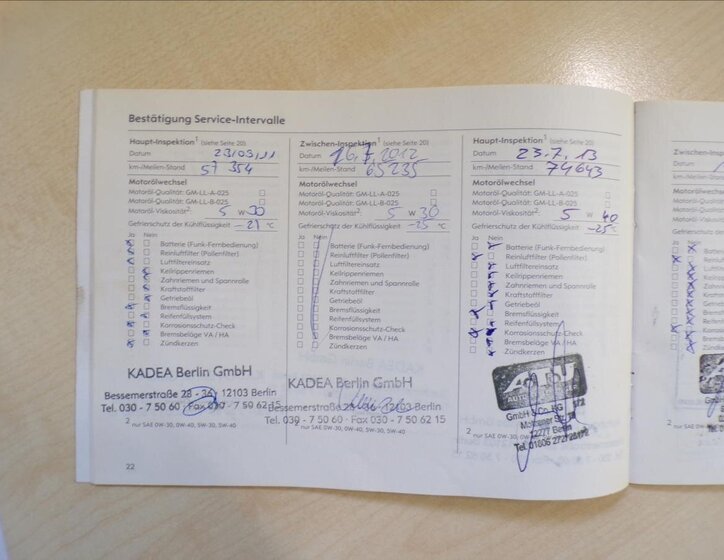 Bestätigung Service-Intervalle
Haupt-Inspektion¹ (siehe Seite 20)
Datum 23/03/11
km-/Meilen-Stand 57 354
Motorölwechsel
Motoröl-Qualität: GM-LL-A-025
Motoröl-Qualität: GM-LL-B-025
Motoröl-Viskosität² 5 W 30
Gefrierschutz der Kühlflüssigkeit -21 °C
Ja Nein
Batterie (Funk-Fernbedienung)
Reinluftfilter (Pollenfilter)
Luftfiltereinsatz
Keilrippenriemen
Zahnriemen und Spannrolle
Kraftstofffilter
Getriebeöl
Bremsflüssigkeit
Reifenfüllsystem
Korrosionsschutz-Check
Bremsbeläge VA / HA
Zündkerzen
KADEA Berlin GmbH
Bessemerstraße 28 - 36, 12103 Berlin
Tel. 030 - 7 50 60 Fax 030 - 7 50 62 15
2 nur SAE 0W-30, 0W-40, 5W-30, 5W-40
22
Zwischen-Inspektion¹ (siehe Seite 20)
Datum 16.7.2012
km-/Meilen-Stand 65235
Motorölwechsel
Motoröl-Qualität: GM-LL-A-025
Motoröl-Qualität: GM-LL-B-025
Motoröl-Viskosität² 5 W 30
Gefrierschutz der Kühlflüssigkeit -25 °C
Ja Nein
Batterie (Funk-Fernbedienung)
Reinluftfilter (Pollenfilter)
Luftfiltereinsatz
Keilrippenriemen
Zahnriemen und Spannrolle
Kraftstofffilter
Getriebeöl
Bremsflüssigkeit
Reifenfüllsystem
Korrosionsschutz-Check
Bremsbeläge VA / HA
Zündkerzen
KADEA Berlin GmbH
Bessemerstraße 12103 Berlin
Tel. 030 - 7 50 60 · Fax 030 - 7 50 62 15
2 nur SAE 0W-30, 0W-40, 5W-30, 5W-40
Haupt-Inspektion¹ (siehe Seite 20)
Datum 23.7.13
km-/Meilen-Stand 74643
Motorölwechsel
Motoröl-Qualität: GM-LL-A-025
Motoröl-Qualität: GM-LL-B-025
Motoröl-Viskosität² 5 W 40
Gefrierschutz der Kühlflüssigkeit -25 °C
Ja Nein
Batterie (Funk-Fernbedienung)
Reinluftfilter (Pollenfilter)
Luftfiltereinsatz
Keilrippenriemen
Zahnriemen und Spannrolle
Kraftstofffilter
Getriebeöl
Bremsflüssigkeit
Reifenfüllsystem
Korrosionsschutz-Check
Bremsbeläge VA / HA
Zündkerzen
GmbH & Co. KG
12277 Berlin
2 nur SAE 0W-30, 0W-40, 5W-30, 5W-40
Datum
km-/Meilen-Stand
Motorölwechsel
Ja Nein